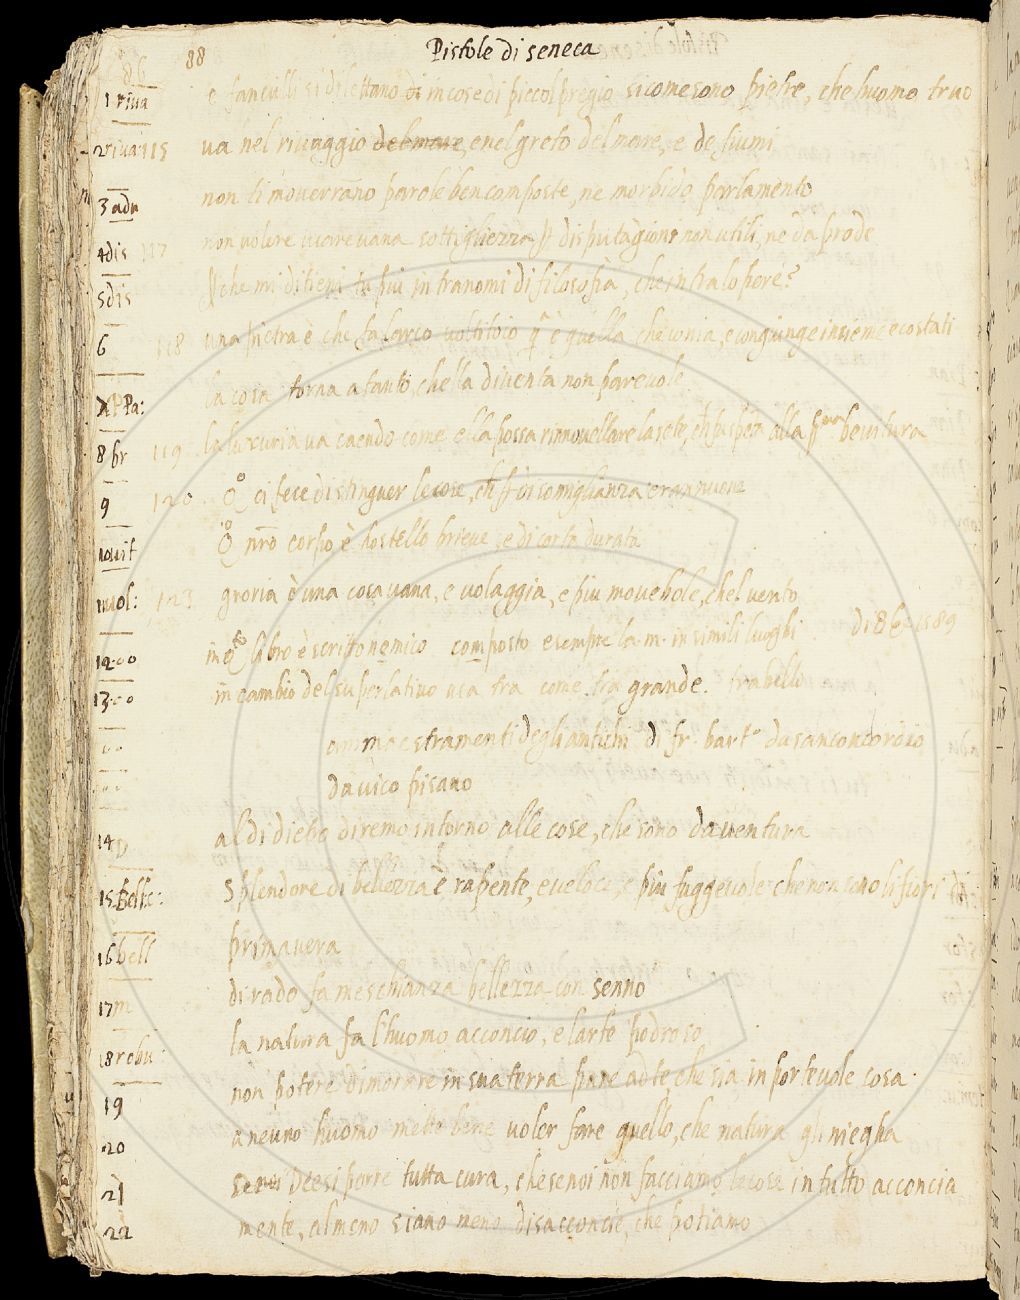 86 88 Pistole di seneca
1 riua e fanciulli si dilettano di in cose di piccol pregio si come sono pietre, che huomo truo
2 riua 115 ua nel riuaggio del mare, e nel greto del mare, e de fiumi
3 adu non ti mouerrano parole ben composte, ne morbido parlamento
4 dis 117 non uolere uana sottigliezza p disputagioni non utili, ne da prode
5 dis p che mi ditieni tu piu in tra nomi di filosofia, che in tra lopere?
6 118 una pietra è che fa larco uoltitoio q è quella che conia, e congiunge insieme e costati
7 Pa: la cosa torna a tanto, che lla diuenta non pareuole
8 br 119 la luxuria ua caendo come ella possa rinnouellare la sete, beuitura
9 120 ci fece distinguer le cose, ch p disomiglianza eran nuoue
10 uit nro corpo è hostello brieue, e di corta durata
11 uol: 123 groria è una cosa uana, e uolaggia, e piu mouebole, chel uento
12.00 in libro è scritto nemico composto e sempre la m. in simili luoghi di 8 1589
13.00 in cambio del superlatiuo usa tra come tra grande. tra bello
ammaestramenti degli antichi di fr. barto da san concordio
da uico pisano
14 D al di dietro diremo intorno alle cose, che sono da uentura
15 Belle: splendore di bellezza è rapente, e ueloce, e piu fuggeuole che non sono li fiori di
primauera
16 bell
17 m di rado fa meschianza bellezza con senno
18 robu: la natura fa l'huomo acconcio, e larte podroso
19 non potere dimorare in sua terra pare ad te che sia inporteuole cosa.
20 a neuno huomo mette bene uoler fare quello, che natura gli niegha
21 deesi porre tutta cura, che se noi non facciamo le cose in tutto acconcia
22 mente, almeno siano meno disacconcie, che potiamo